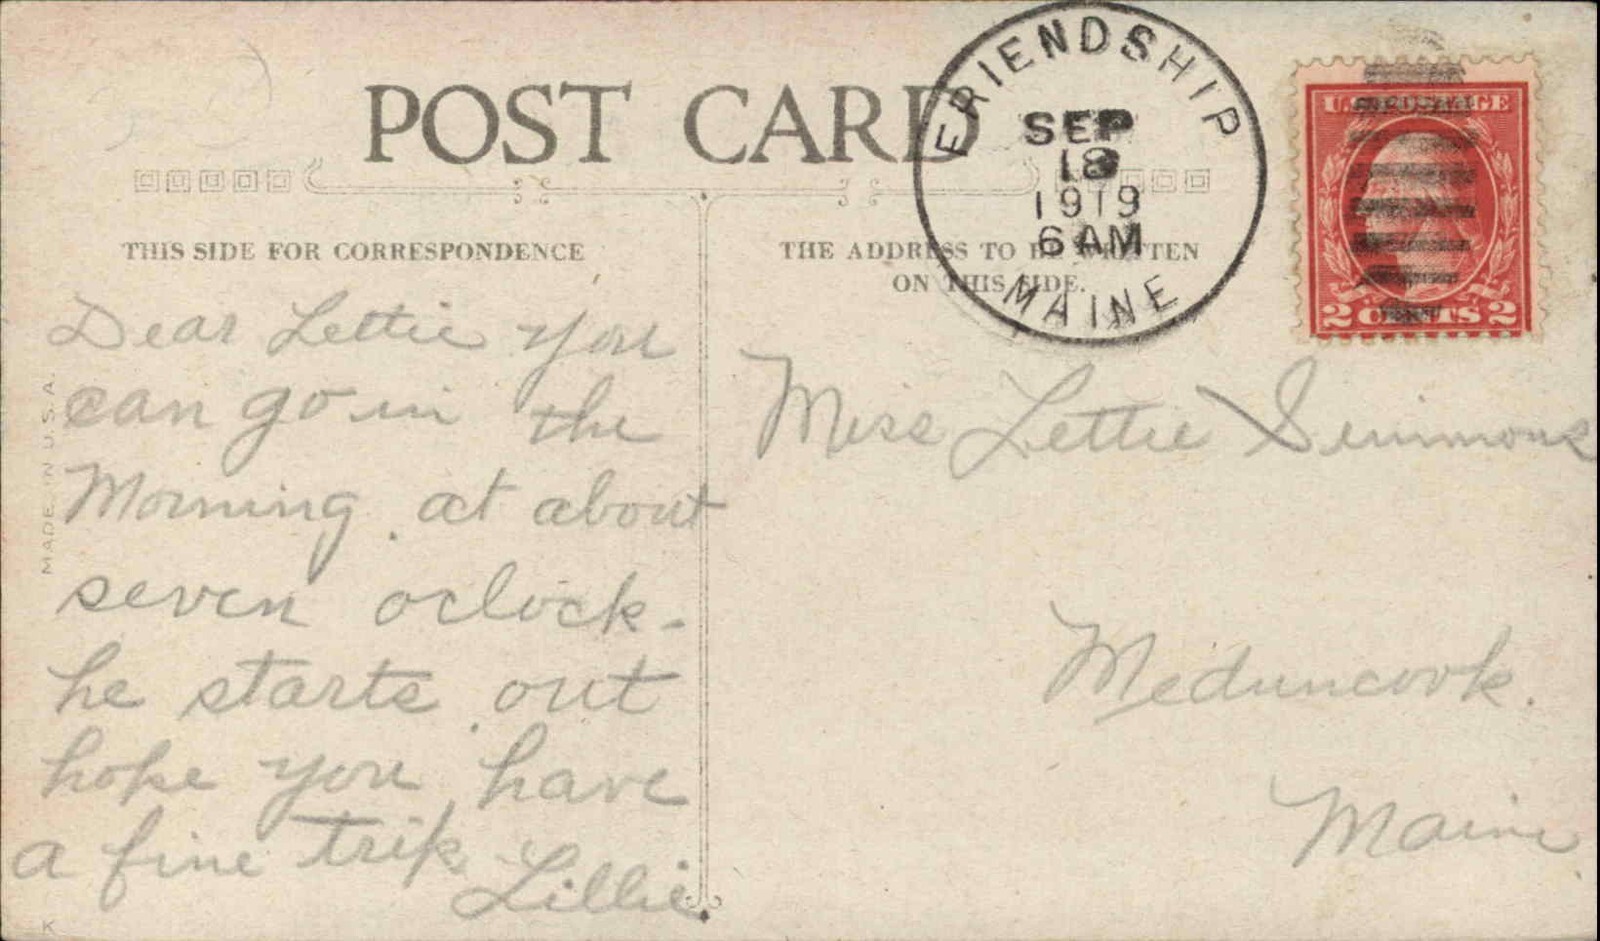 POST CARD
THIS SIDE FOR CORRESPONDENCE
THE ADDRESS TO BE WRITTEN
ON THIS SIDE.
FRIENDSHIP
SEP
18
1919
6 AM
MAINE
U.S. POSTAGE
2 CENTS 2
Dear Lettie you
can go in the
Morning at about
seven oclock -
he starts out
hope you have
a fine trip
Lillie.
Miss Lettie Simmons
Meduncook.
Maine
MADE IN U.S.A.
K